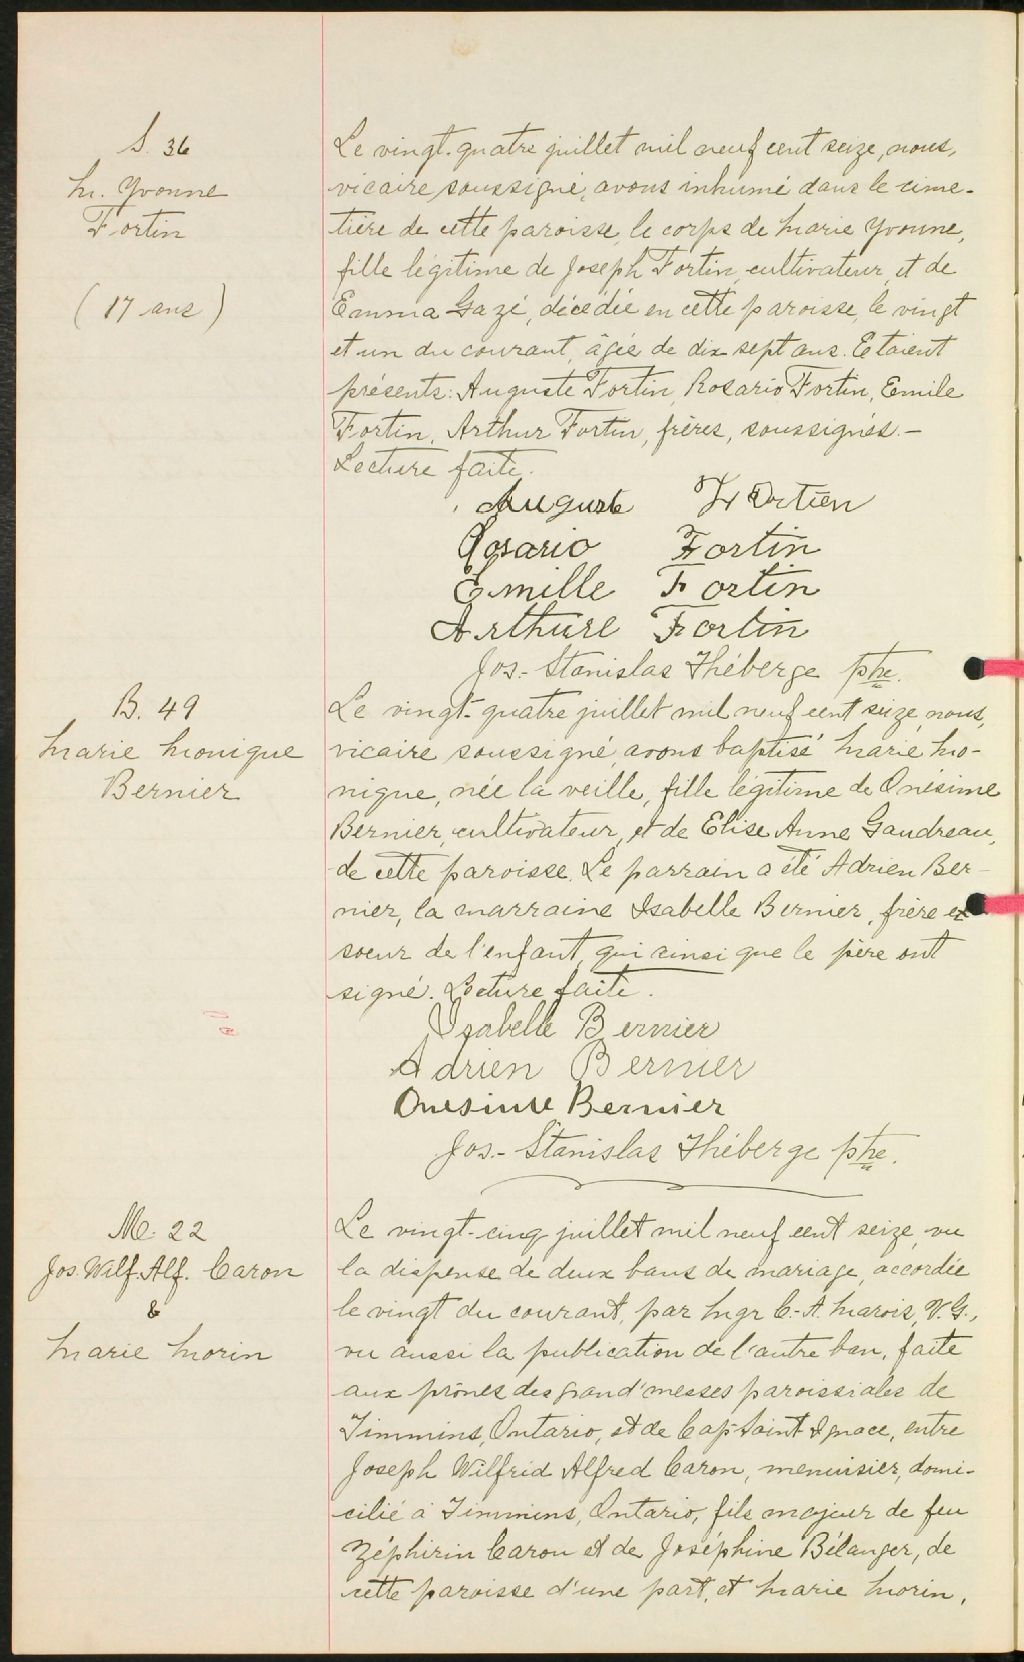 S. 36
M. Yvonne
Fortin
(17 ans)
Le vingt-quatre juillet mil neuf cent seize, nous,
vicaire soussigné, avons inhumé dans le cime-
tière de cette paroisse, le corps de Marie Yvonne,
fille légitime de Joseph Fortin, cultivateur, et de
Emma Gazé, décédée en cette paroisse, le vingt
et un du courant, âgée de dix sept ans. Etaient
présents: Auguste Fortin, Rosario Fortin, Emile
Fortin, Arthur Fortin, frères, soussignés.-
Lecture faite.
Auguste Fortien
Rosario Fortin
Emille Fortin
Arthure Fortin
Jos.-Stanislas Théberge ptre.
B. 49
Marie Monique
Bernier
Le vingt-quatre juillet mil neuf cent seize, nous,
vicaire soussigné, avons baptisé Marie Mo-
nique, née la veille, fille légitime de Onésime
Bernier, cultivateur, et de Elise Anne Gaudreau,
de cette paroisse. Le parrain a été Adrien Ber-
nier, la marraine Isabelle Bernier, frère et
soeur de l'enfant, qui ainsi que le père ont
signé. Lecture faite.
Isabelle Bernier
Adrien Bernier
Onesime Bernier
Jos.-Stanislas Théberge ptre.
M. 22
Jos. Wilf. Alf. Caron
&
Marie Morin
Le vingt-cinq juillet mil neuf cent seize, vu
la dispense de deux bans de mariage, accordée
le vingt du courant, par Mgr C.-A. Marois, V.G.,
vu aussi la publication de l'autre ban, faite
aux prônes des grand'messes paroissiales de
Timmins, Ontario, et de Cap-Saint Ignace, entre
Joseph Wilfrid Alfred Caron, menuisier, domi-
cilié à Timmins, Ontario, fils majeur de feu
Zéphirin Caron et de Joséphine Bélanger, de
cette paroisse d'une part, et Marie Morin,